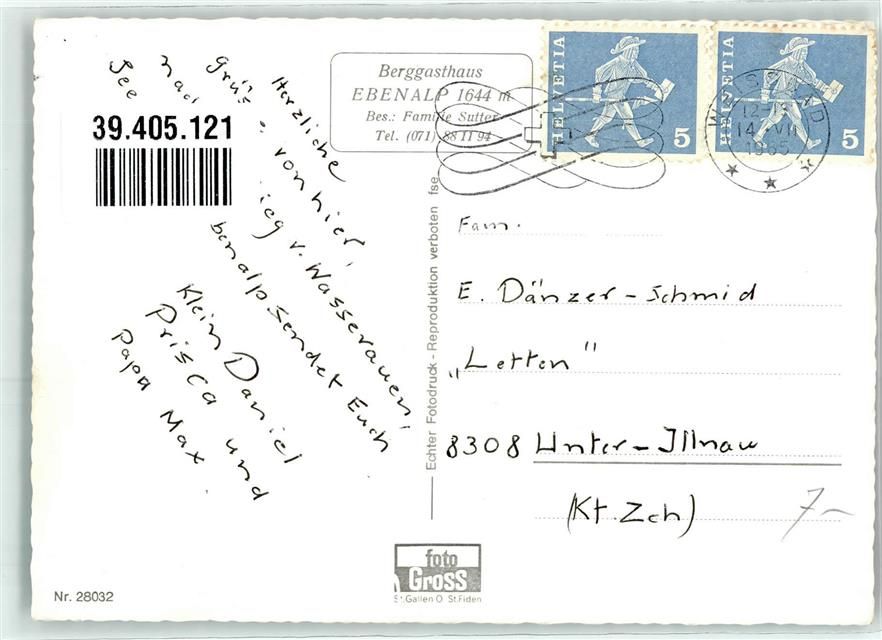 Herzliche
Grüs von hier,
nac ieg v. Wasserauen,
See benalp sendet Euch
Klein Daniel
Prisca und
Papa Max.
39.405.121
Berggasthaus
EBENALP 1644 m
Bes.: Familie Sutter
Tel. (071) 88 11 94
HELVETIA 5
HELVETIA 5
12-
14. VII
1965
Fam.
E. Dänzer-Schmid
„Letten"
8308 Unter-Illnau
(Kt. Zch)
7.-
Echter Fotodruck - Reproduktion verboten fse
foto
Gross
St.Gallen O St.Fiden
Nr. 28032